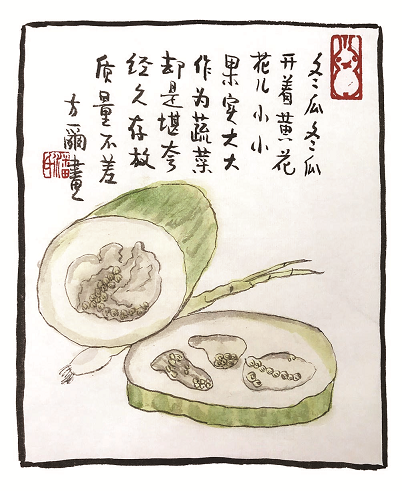 冬瓜冬瓜
开着黄花
花儿小小
果实大大
作为蔬菜
却是堪夸
经久存放
质量不差
方爾畫